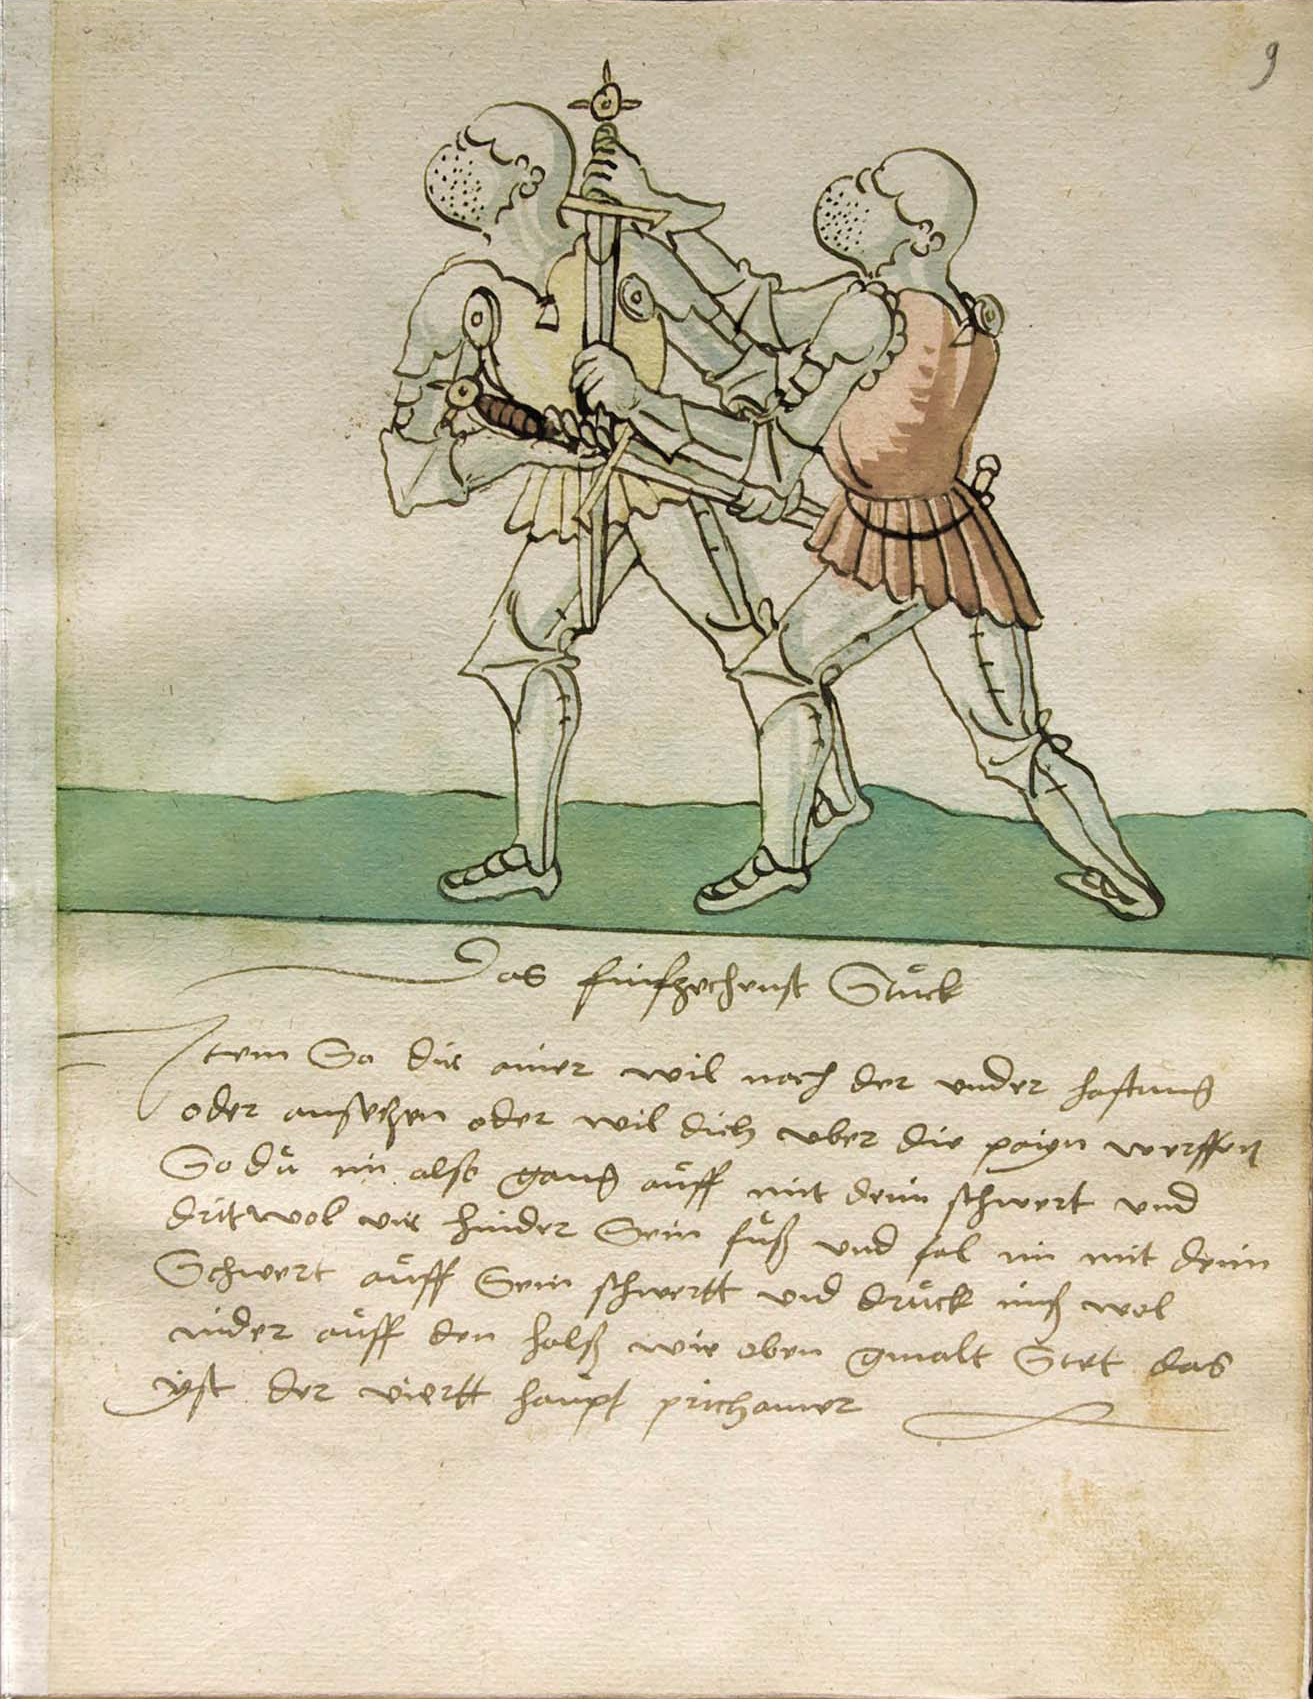 9
Das funfzechenst Stuck
Item So dir ainer wil nach der under haltung
oder ansetzen oder wil dich uber die pain werffen
So du im also gang auff mit deim schwert und
drit wol vir hinder Sein fuß und fal im mit deim
Schwert auff Sein schwertt und druck imß wol
nider auff den halß wie oben gmalt Stet das
yst der viertt haupt